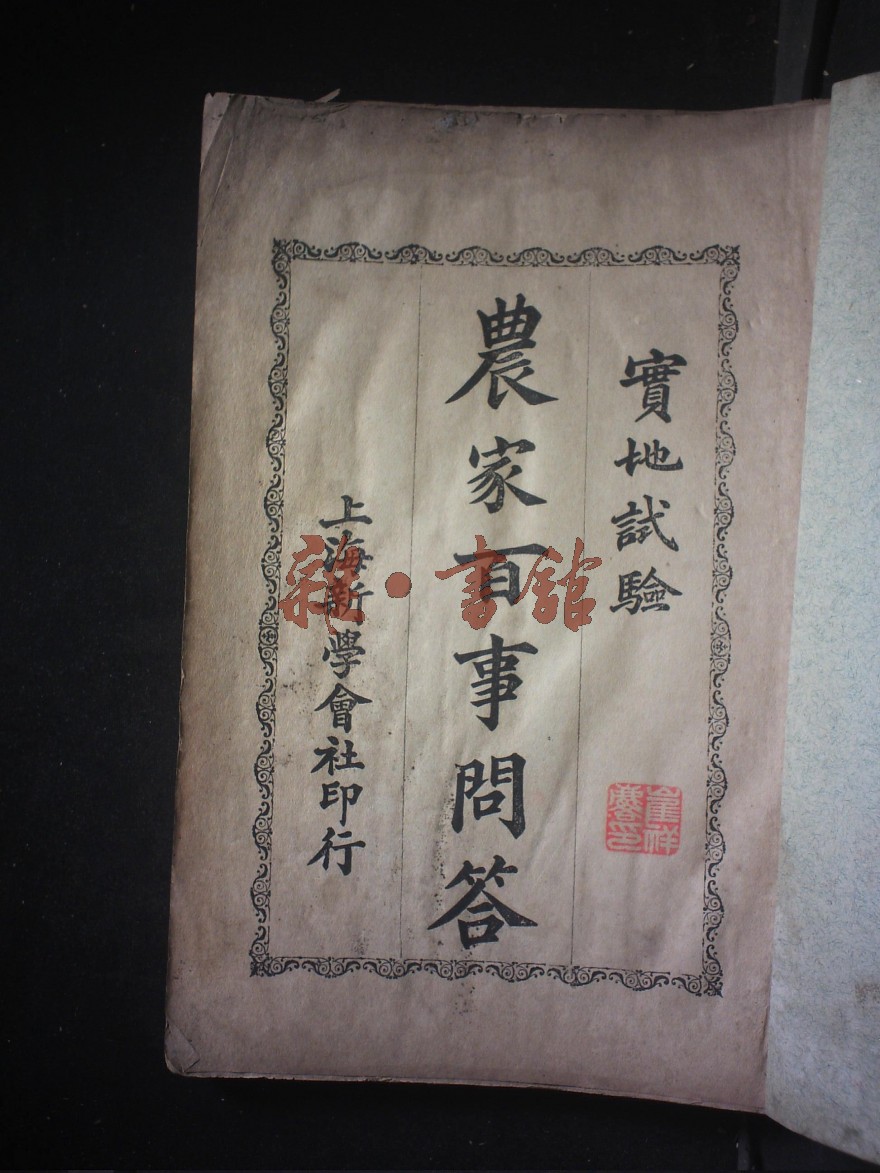 實地試驗
農家百事問答
上海新學會社印行
雜·書館